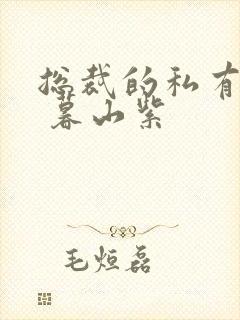 总裁的私有
暮山紫
毛烜磊